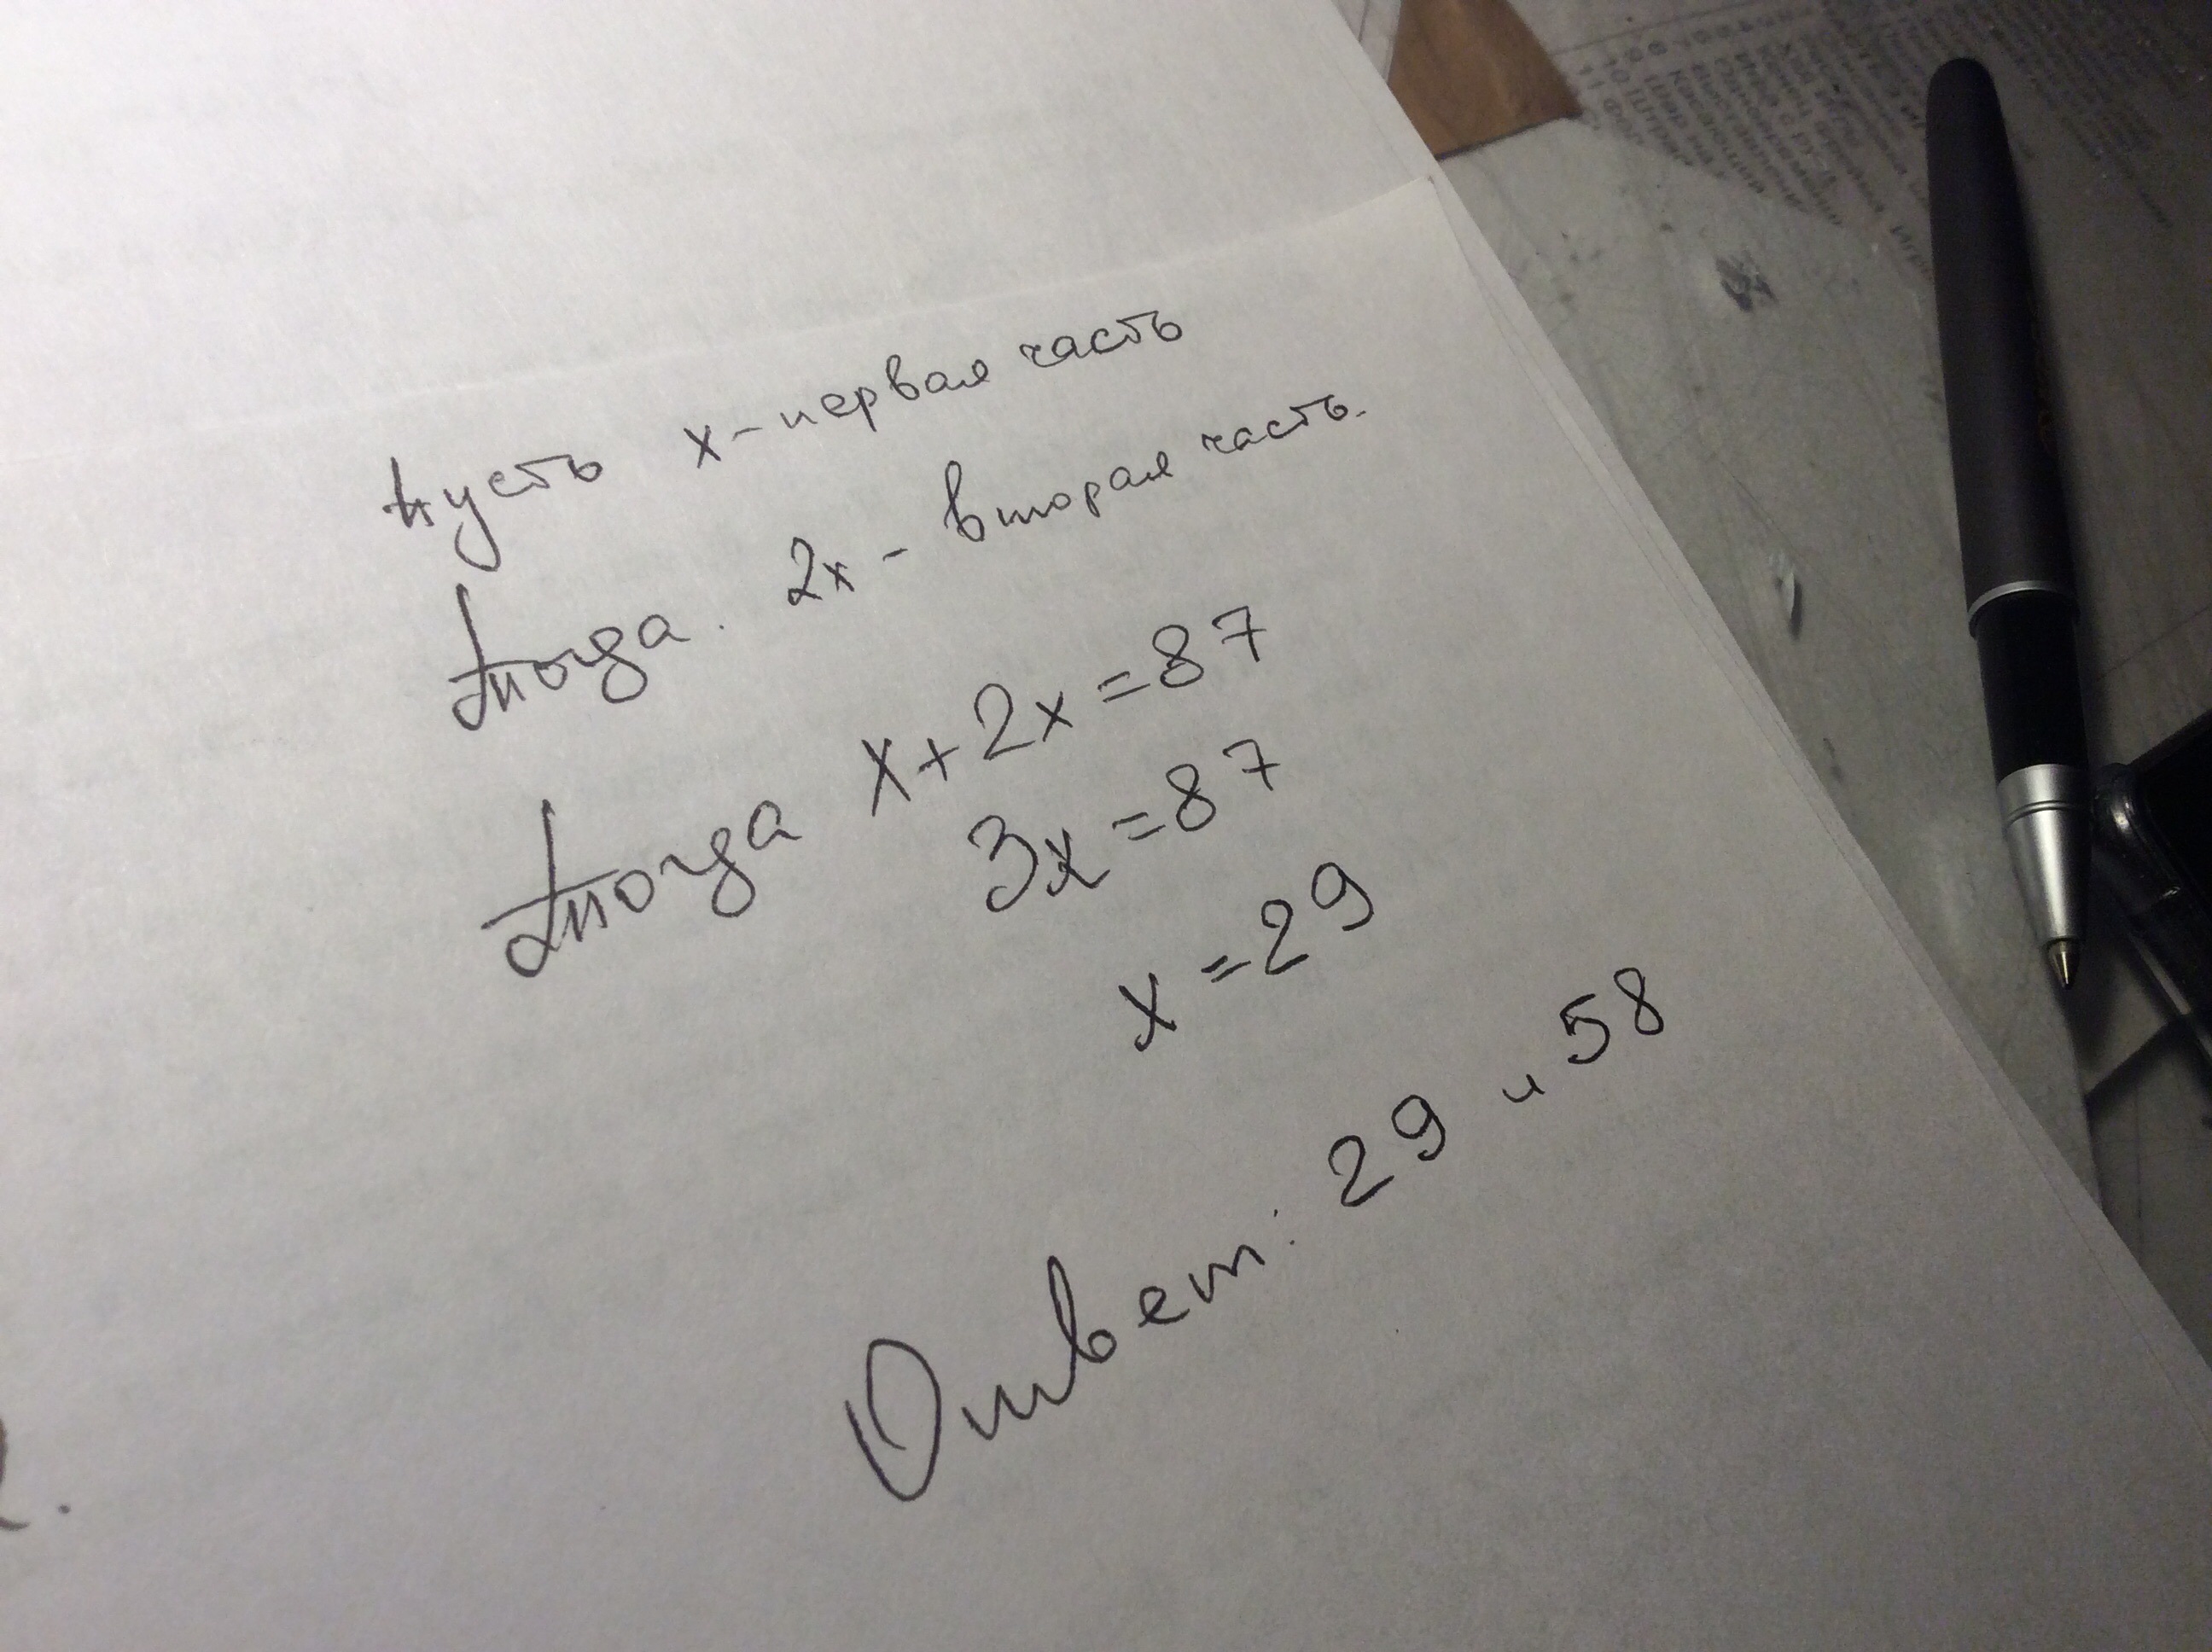 Пусть x - первая часть
Тогда. 2x - вторая часть.
Тогда x + 2x = 87
3x = 87
x = 29
Ответ: 29 и 58